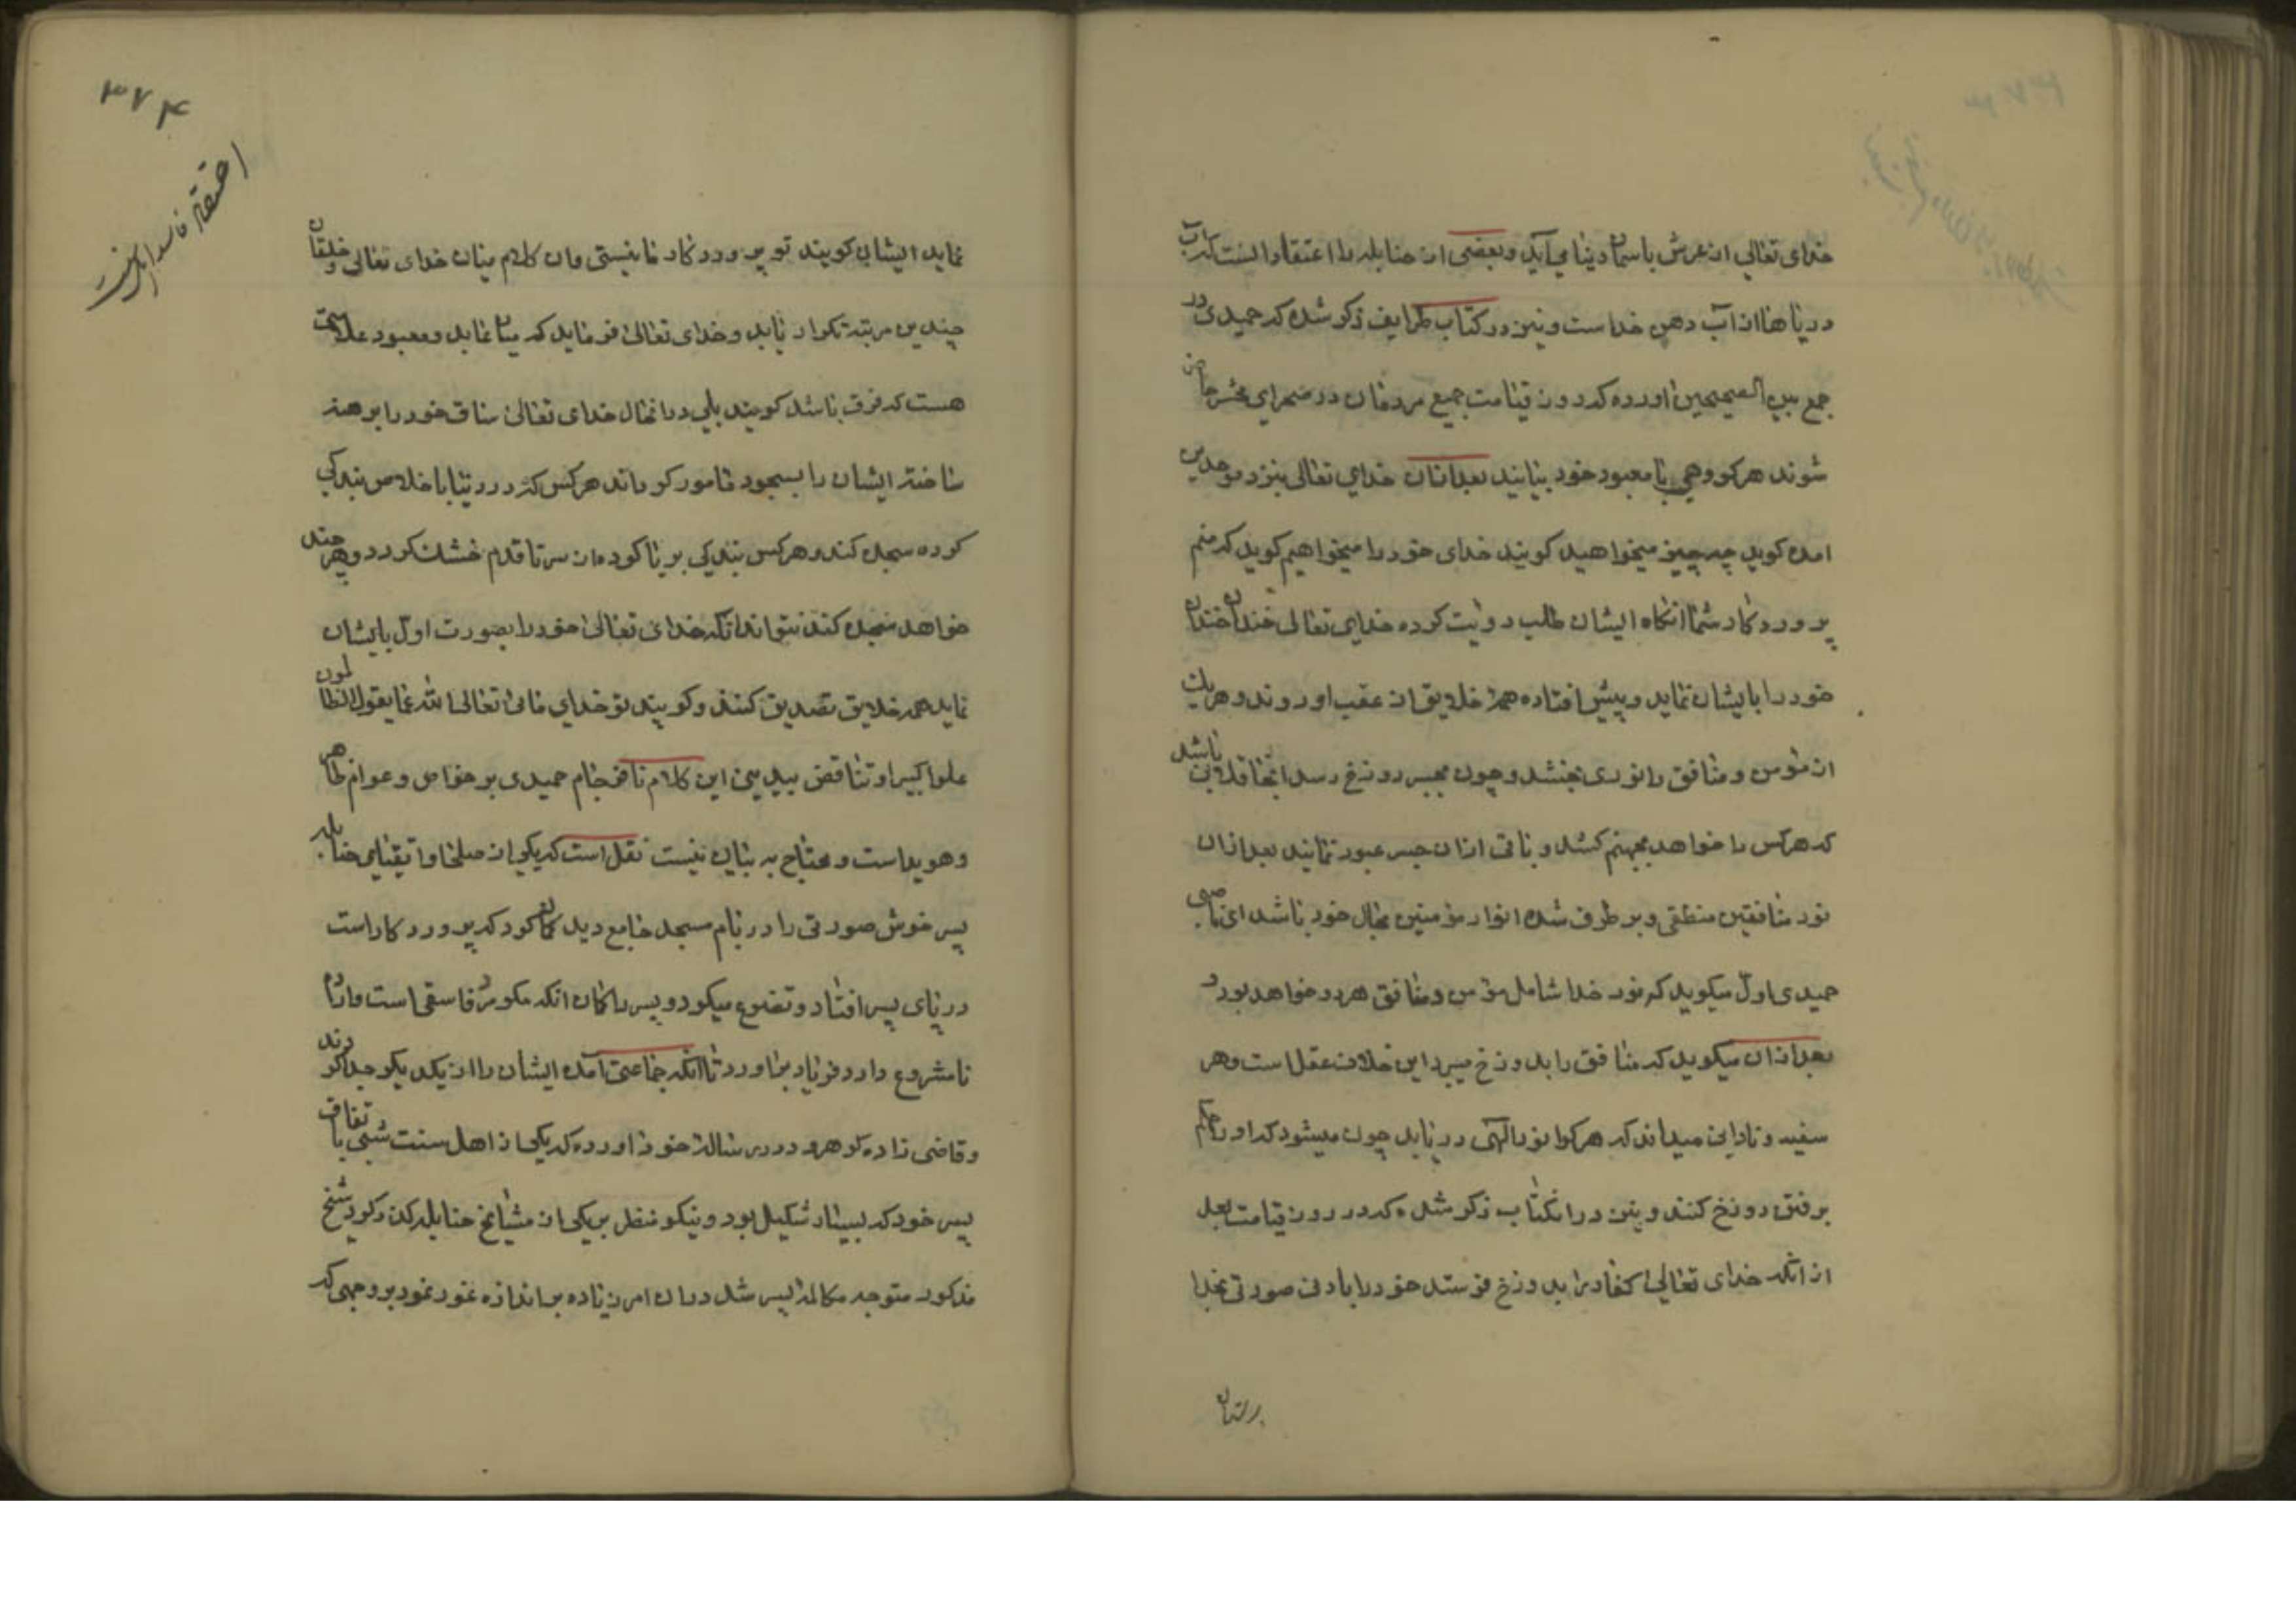 خدای تعالی از عرش باسمان دنیا می‌آید و بعضی از حنابله را اعتقاد اینست که آب
دریاها از آب دهن خداست و نیز در کتاب طرایف ذکر شده که حمیدی در
جمع بین الصحیحین آورده که در روز قیامت جمیع مردمان در صحرای محشر حاضر
شوند هر کروهی با معبود خود بیایند بعد از آن خدای تعالی بنزد موحدین
آمده کوید چه چیز میخواهید کویند خدای خود را میخواهیم کوید که منم
پروردکار شما آنکاه ایشان طلب رؤیت کرده خدای تعالی خندان خندان
خود را بایشان نماید و پیش افتاده همه خلایق از عقب او روند و هر یک
از مؤمن و منافق را نوری بخشد و چون بجسر دوزخ رسد آنجا قلابی باشد
که هر کس را خواهد بجهنم کشد و باقی از آن جسر عبور نمایند بعد از آن
نور منافقین منطفی و برطرف شده انوار مؤمنین بحال خود باشد ای ناصبی
حمیدی اول میکوید که نور خدا شامل مؤمن و منافق هر دو خواهد بود و
بعد از آن میکوید که منافق را بدوزخ میبرد این خلاف عقل است و هر
سفیه و نادانی میداند که هر کرا نور الهی دریابد چون میشود که او را حکم
برفتن دوزخ کنند و نیز در آن کتاب ذکر شده که در روز قیامت بعد
از آنکه خدای تعالی کفار را بدوزخ فرستد خود را بادنی صورتی بخدا
پرستان
۳۷۴
نماید ایشان کویند تو پروردکار ما نیستی و آن کلام میان خدای تعالی و خلقان
چندین مرتبه تکرار یابد و خدای تعالی فرماید که میان عابد و معبود علامتی
هست که فرق باشد کویند بلی در آنحال خدای تعالی ساق خود را برهنه
ساخته ایشان را بسجود مأمور کرداند هر کس که در دنیا باخلاص بندکی
کرده سجده کند و هر کس بندکی بریا کرده از سر تا قدم خشک کردد و هر چند
خواهد سجده کند نتواند آنکه خدای تعالی خود را بصورت اول بایشان
نماید همه خلایق تصدیق کنند و کویند تو خدای مائی تعالی الله عما یقول الظالمون
علوا کبیرا و تناقض بیدینی این کلام نافرجام حمیدی بر خواص و عوام ظاهر
و هویداست و محتاج به بیان نیست نقل است که یکی از صلحا و اتقیای حنابله
پسر خوش صورتی را در بام مسجد جامع دید کمان کرد که پروردکار است
در پای پسر افتاد و تضرع میکرد و پسر را کمان آنکه مکر مرد فاسقی است و اراده
نامشروع دارد فریاد برآورد تا آنکه جماعتی آمده ایشان را از یکدیکر جدا کردند
و قاضی زاده کرهرود در رساله خود آورده که یکی از اهل سنت شبی باتفاق
پسر خود که بسیار شکیل بود و نیکو منظر بر یکی از مشایخ حنابله کذر کرد شیخ
مذکور متوجه مکالمه پسر شد در آن امر زیاده بر اندازه غور نمود بر وجهی که